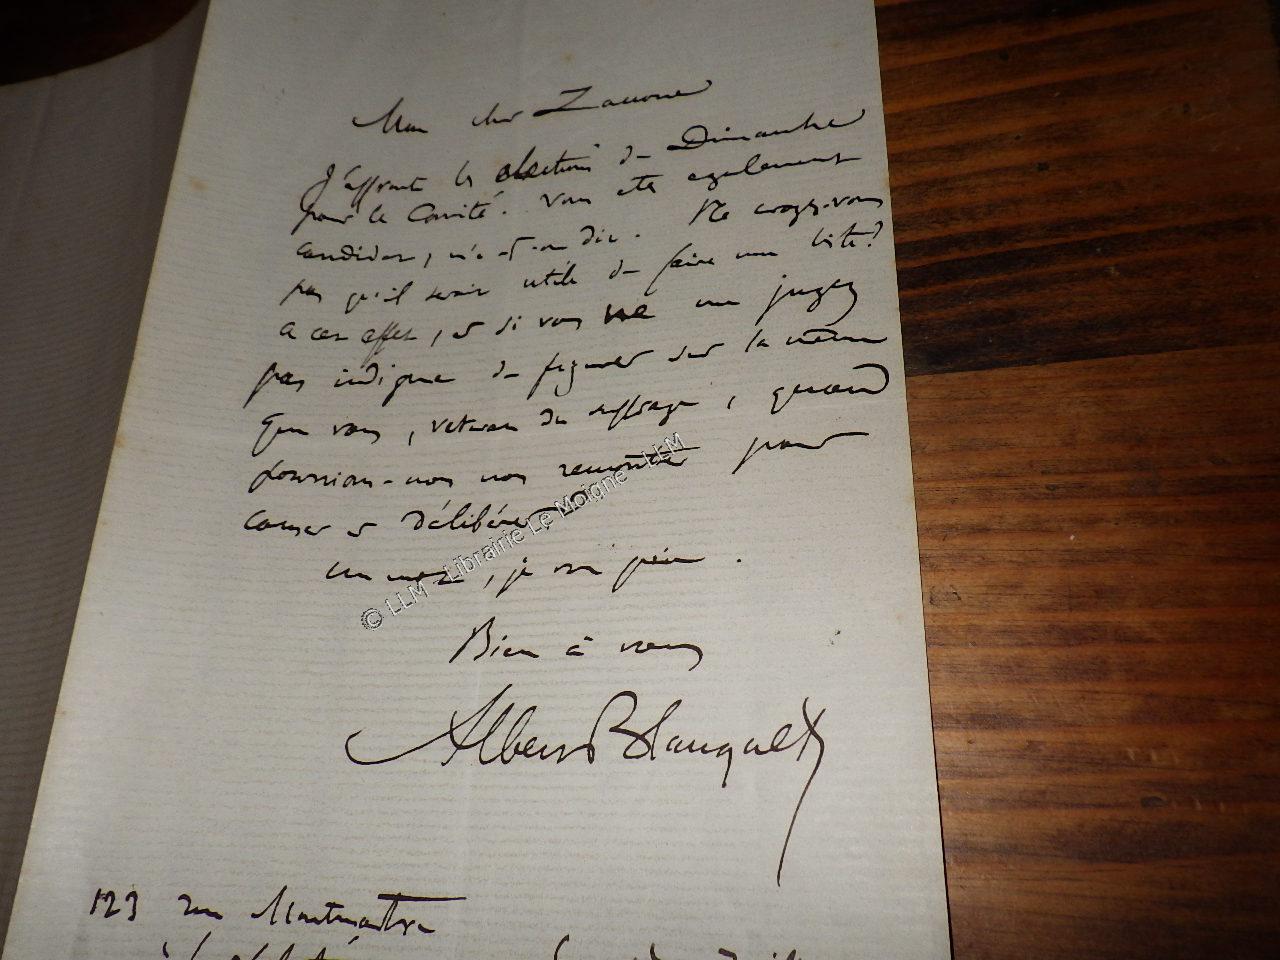 Mon cher Zaccone
J'affronte les élections de Dimanche
pour le Comité. Vous êtes également
candidat, m'a-t-on dit. Ne croyez-vous
pas qu'il serait utile de faire une liste?
A cet effet, et si vous ne me jugez
pas indigne de figurer sur la même
que vous, vétéran du suffrage, quand
pourrions-nous nous rencontrer pour
causer et délibérer
un mot, je vous prie.
Bien à vous
Albert Blanquet
© LLM - Librairie Le Moigne - LLM
123 rue Montmartre